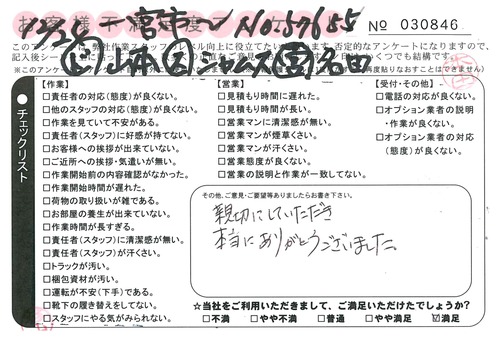 12/28 一宮市〜 No.57655
お客様不満足度
№ 030846
㊤山本 ㋜シャルマ 園 名田
このアンケートは、弊社作業スタッフのレベル向上に役立てたい
ます。否定的なアンケートになりますので、
記入後シー
くつでも結構です。
(※このアン
再度貼りなおすことはできません)
チェックリスト
【作業】
□責任者の対応(態度)が良くない。
□他のスタッフの対応(態度)が良くない。
□作業を見ていて不安がある。
□責任者(スタッフ)に好感が持てない。
□お客様への挨拶が出来ていない。
□ご近所への挨拶・気遣いが無い。
□作業開始前の内容確認がなかった。
□作業開始時間が遅れた。
□荷物の取り扱いが雑である。
□お部屋の養生が出来ていない。
□作業時間が長すぎる。
□責任者(スタッフ)に清潔感が無い。
□責任者(スタッフ)が汗くさい。
□トラックが汚い。
□梱包資材が汚い。
□運転が不安(下手)である。
□靴下の履き替えをしてない。
□スタッフにやる気が感じられない。
【営業】
□見積もり時間に遅れた。
□見積もり時間が長い。
□営業マンに清潔感が無い。
□営業マンが煙草くさい。
□営業マンが汗くさい。
□営業態度が良くない。
□営業の説明と作業が一致してない。
【受付・その他】
□電話の対応が良くない。
□オプション業者の説明
・作業が良くない。
□オプション業者の対応
(態度)が良くない。
その他、ご意見・ご要望等ありましたらお書き下さい。
親切にしていただき
本当にありがとうございました。
☆当社をご利用いただきまして、ご満足いただけたでしょうか?
□不満 □やや不満 □普通 □やや満足 ☑満足